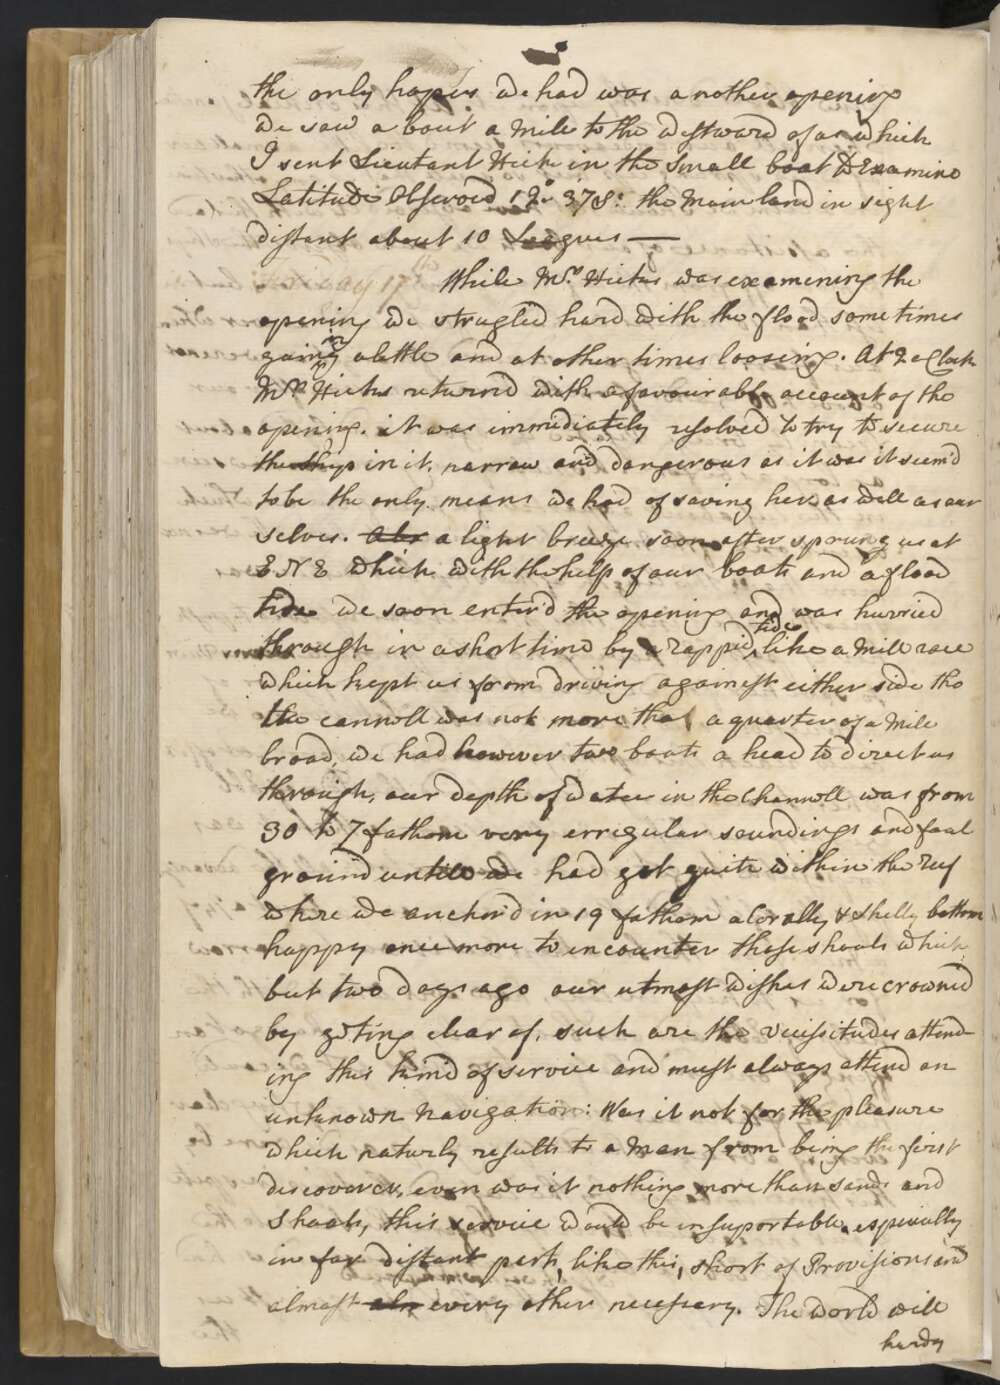 the only hopes we had was another opening
we saw about a Mile to the Westward of us which
I sent Lieutenant Hicks in the Small boat to Examine
Latitude Observed 12° 37' S: the Main land in sight
distant about 10 Leagues —
While Mr. Hicks was examening the
opening we strugled hard with the flood some times
gaining a little and at other times loosing. At 2 oClock
Mr. Hicks returnd with a favourable account of the
opening. it was immidiately resolved to try to secure
the Ship in it, narrow and dangerous as it was it seem'd
to be the only means we had of saving her as well as our
selves. a light breeze soon after sprung up at
ENE which with the help of our boats and a flood
tide we soon enter'd the opening and was hurried
through in a short time by a rappid tide like a Mill race
which kept us from driving againest either side tho
the cannell was not more than a quarter of a Mile
broad, we had however two boats a head to direct us
through, our depth of water in the Channell was from
30 to 7 fathom very erregular soundings and foul
ground untill we had got quite within the reef
where we anchor'd in 19 fathom a Corally & Shelly bottom
happy once more to encounter those shoals which
but two days ago our utmost wishes were crowned
by geting clear of, such are the vicissitudes attend
ing this kind of service and must always attend an
unknown Navigation: Was it not for the pleasure
which naturly results to a Man from being the first
discoverer, even was it nothing more than sands and
Shoals, this service would be insuportable especially
in far distant parts, like this, short of Provisions and
almost every other necessary. The World will
hardly